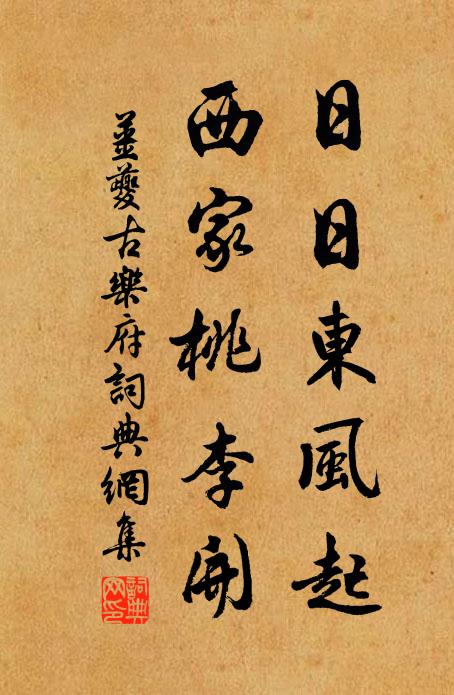 日日東風起
西家桃李開
薑夔古樂府詞典網集
詞典
网印